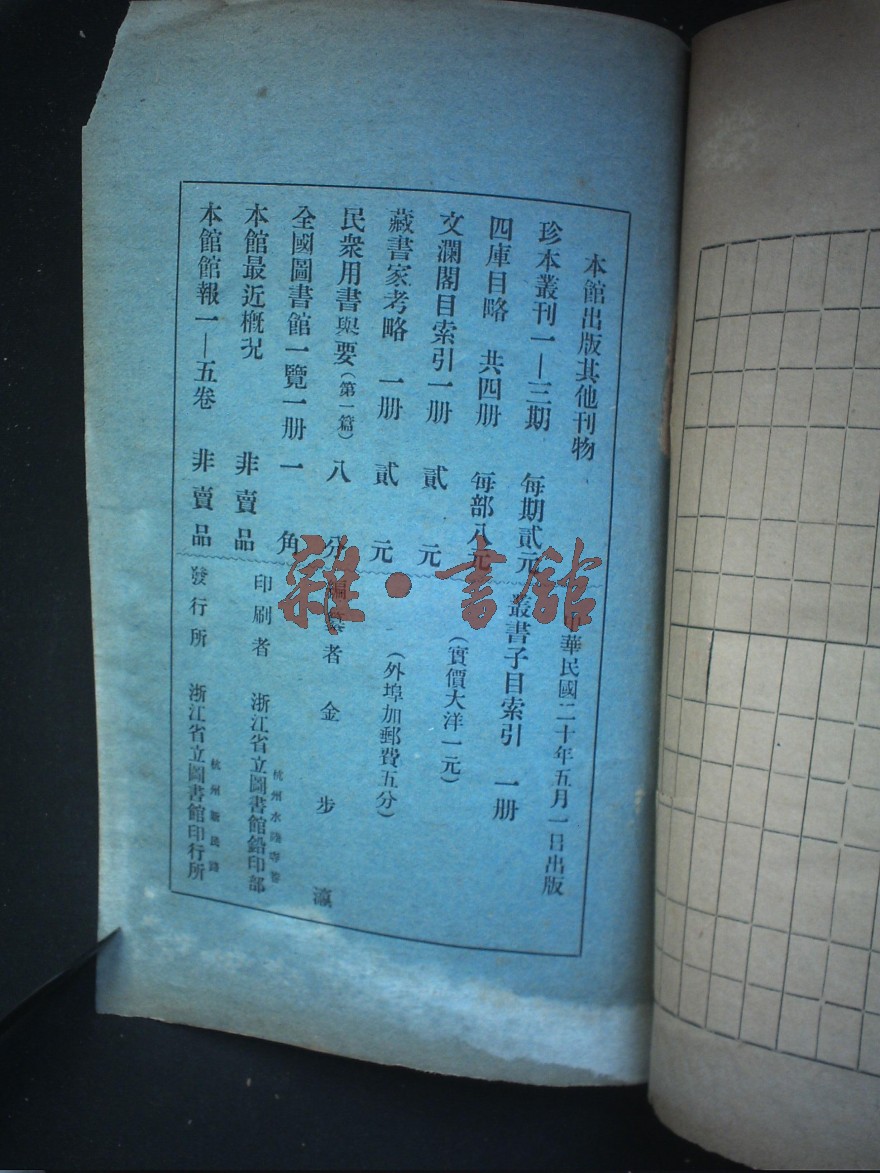 本館出版其他刊物
珍本叢刊一—三期 每期貳元
四庫目略 共四册 每部八元
文瀾閣目索引一册 貳元
藏書家考略 一册 貳元
民衆用書舉要(第一篇) 八分
全國圖書館一覽一册 一角
本館最近概況 非賣品
本館館報一—五卷 非賣品
中華民國二十年五月一日出版
叢書子目索引 一册
(實價大洋一元)
(外埠加郵費五分)
編纂者 金步瀛
印刷者 浙江省立圖書館鉛印部
發行所 杭州新民路
浙江省立圖書館印行所
雜·書館